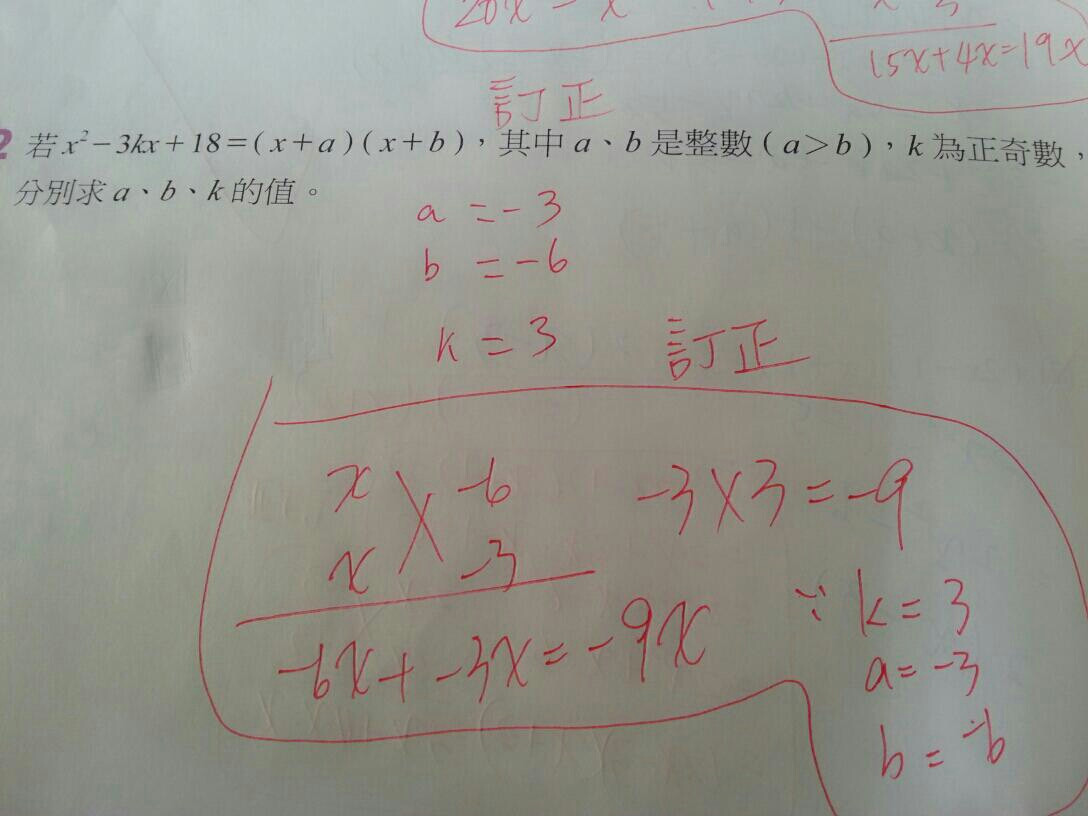 15x+4x=19x
訂正
2 若 x²－3kx＋18＝(x＋a)(x＋b)，其中 a、b 是整數(a＞b)，k 為正奇數，
分別求 a、b、k 的值。
a = -3
b = -6
k = 3
訂正
x -6
x -3
-6x + -3x = -9x
-3×3=-9
∵ k = 3
a = -3
b = -6